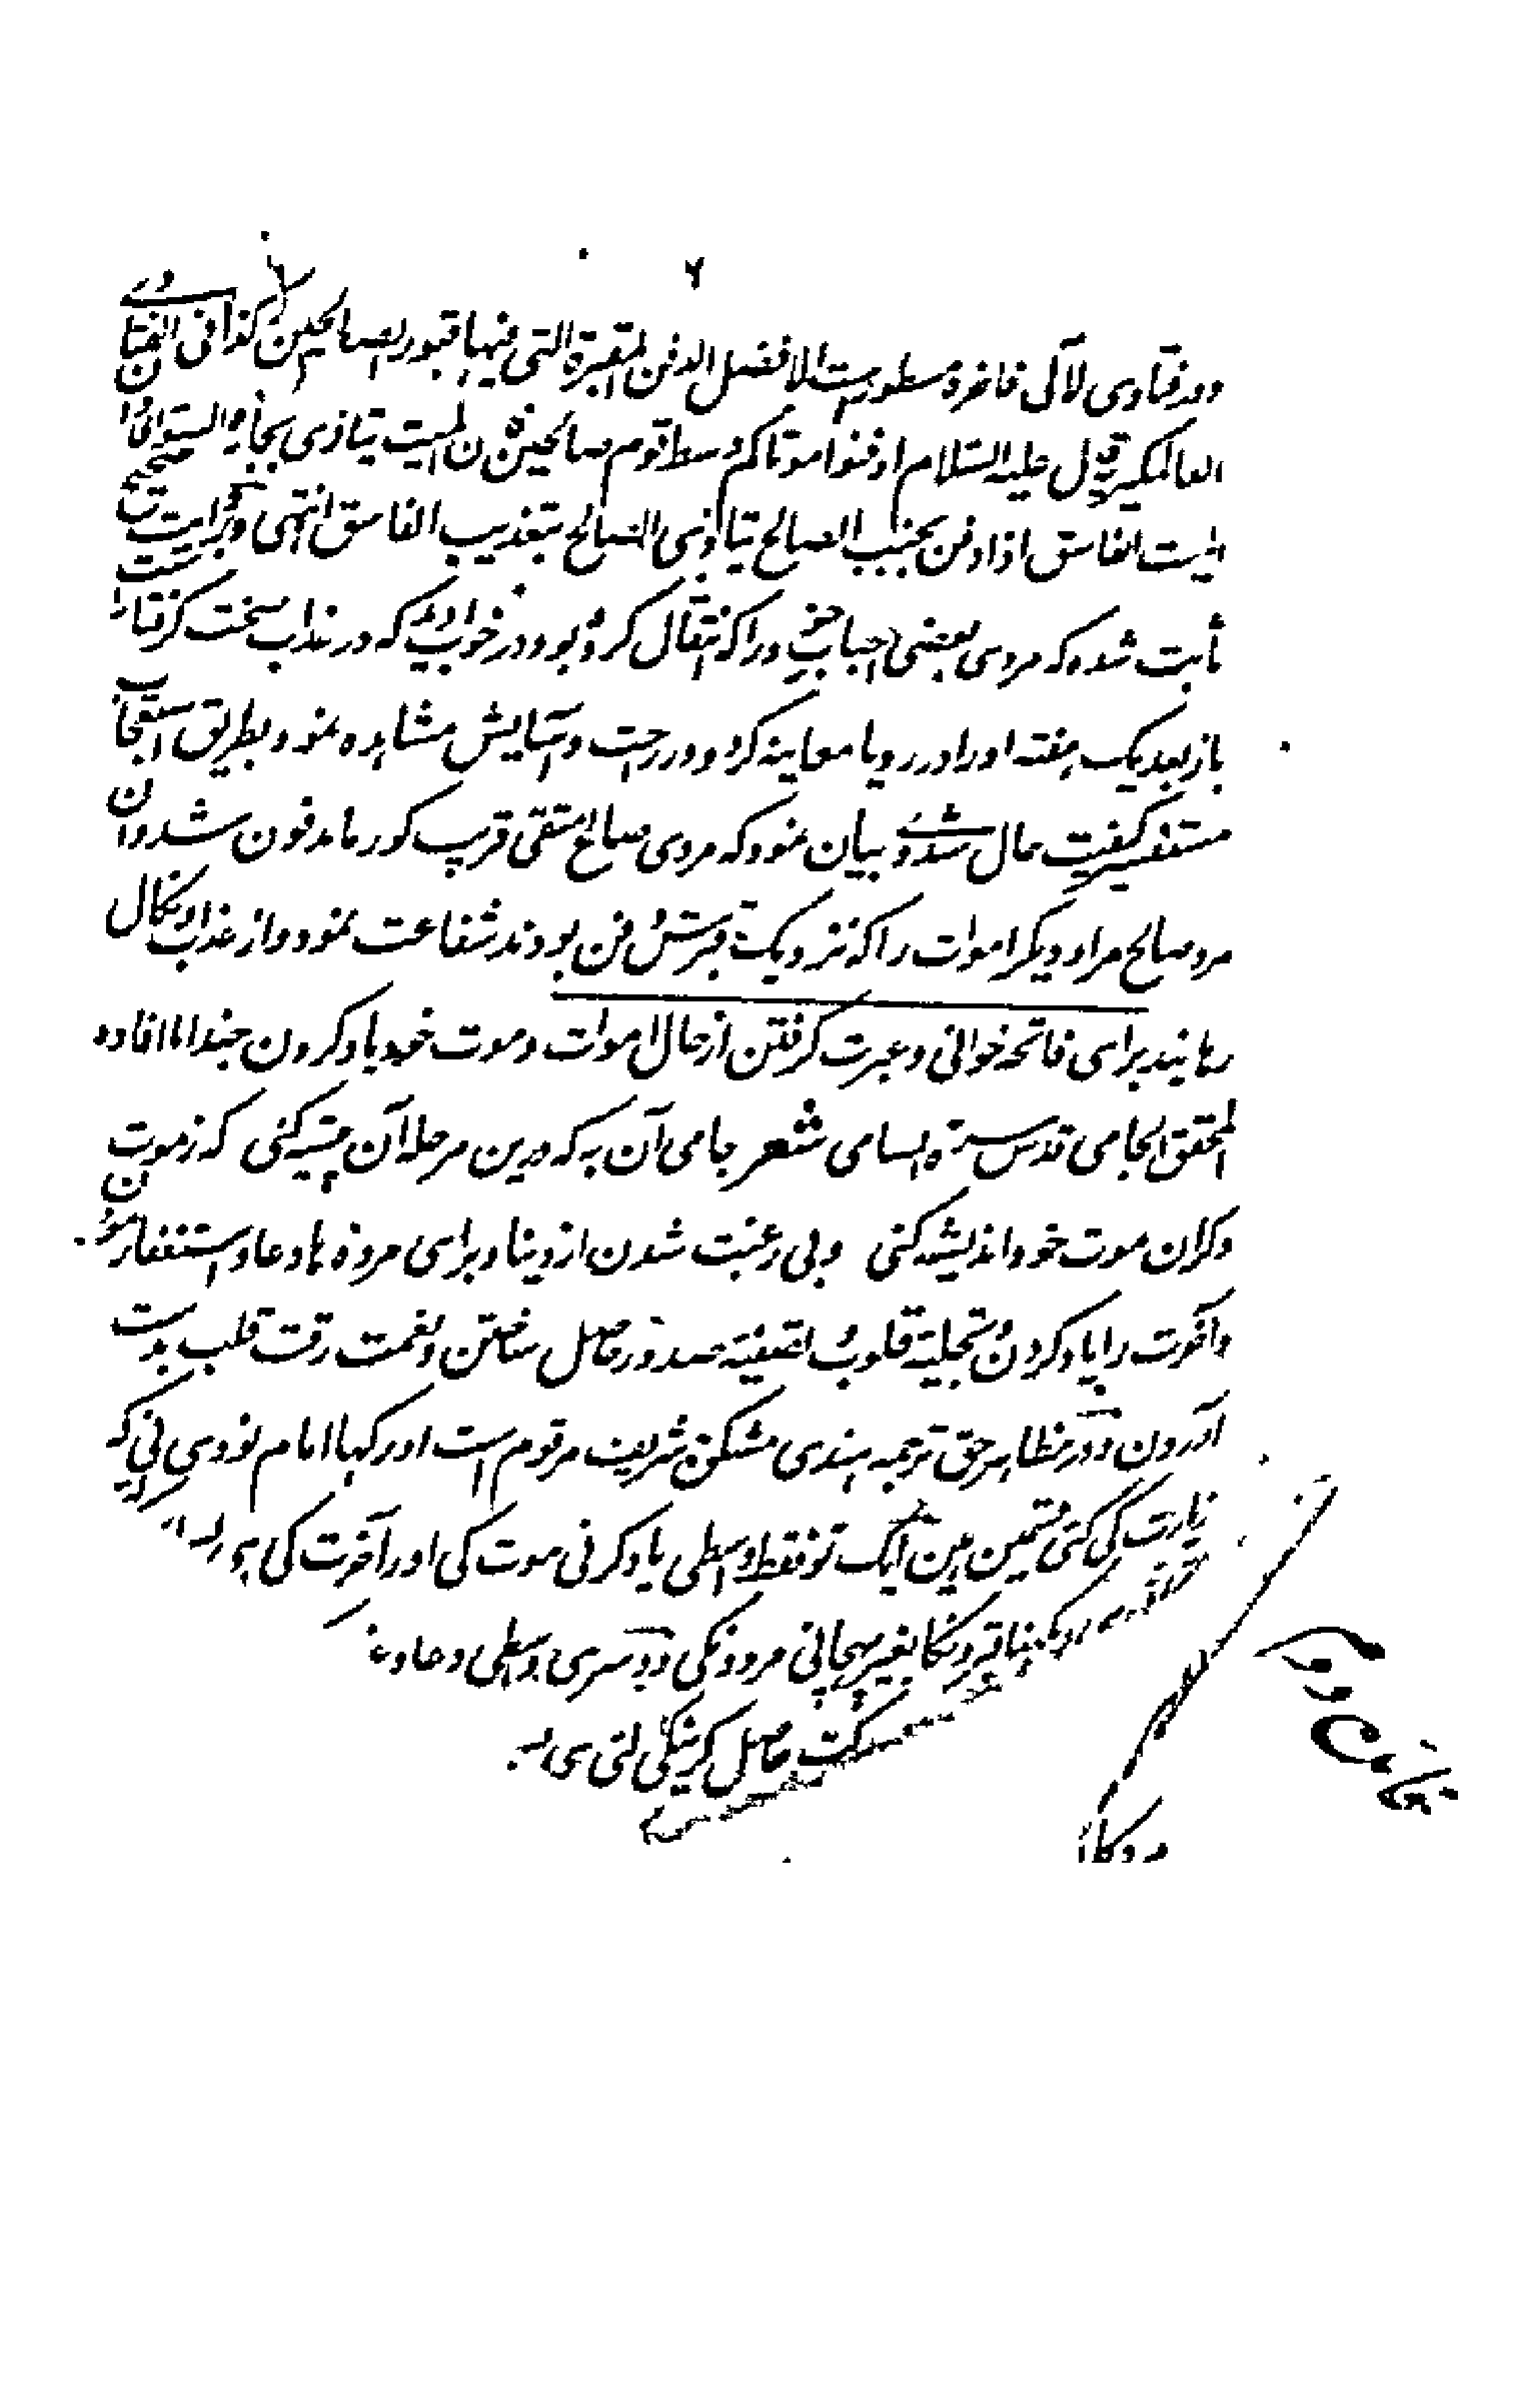 ۶
ودر فتاوی لآلی فاخره مسطورست الافضل الدفن المقبرة التی فیها قبور الصالحین کذا فی الفتاوی
العالمکیریة قال علیه السلام ادفنوا موتاکم وسط قوم صالحین فان المیت یتاذی بجار السوء وان
المیت الفاسق اذا دفن بجنب الصالح یتاذی الصالح بتعذیب الفاسق انتهی وبروایت صحیح
ثابت شده که مردی بعضی احباب خود را که انتقال کرده بود در خواب دید که در عذاب سخت کرفتار است
باز بعد یک هفته او را در رویا معاینه کرد و در راحت و آسایش مشاهده نمود بطریق استعجاب
مستفسر کیفیت حال شد وی بیان نمود که مردی صالح متقی قریب کور ما مدفون شد و آن
مرد صالح مرا و دیکر اموات را که نزدیک قبرش دفن بودند شفاعت نمود و از عذاب و نکال
رهانید برای فاتحه خوانی و عبرت کرفتن از حال اموات و موت خود یاد کردن حبذا ما افاده
المحقق الجامی قدس سره السامی شعر جامی آن به که درین مرحله آن پیشه کنی که ز موت
دکران موت خود اندیشه کنی وبی رغبت شدن از دنیا و برای مرده ها دعا و استغفار نمودن
و آخرت را یاد کردن و تجلیه قلوب و تصفیه صدور حاصل ساختن و نعمت رقت قلب بدست
آوردن و در مظاهر حق ترجمه هندی مشکوة شریف مرقوم است اور کها امام نووی نی که
زیارت کی کئی قسمین هین ایک تو فقط واسطی یاد کرنی موت کی اور آخرت کی
دیکهنا قبرونکا بغیر پهچانی مردونکی دوسری واسطی دعا وغیره
برکت حاصل کرینکی لئی